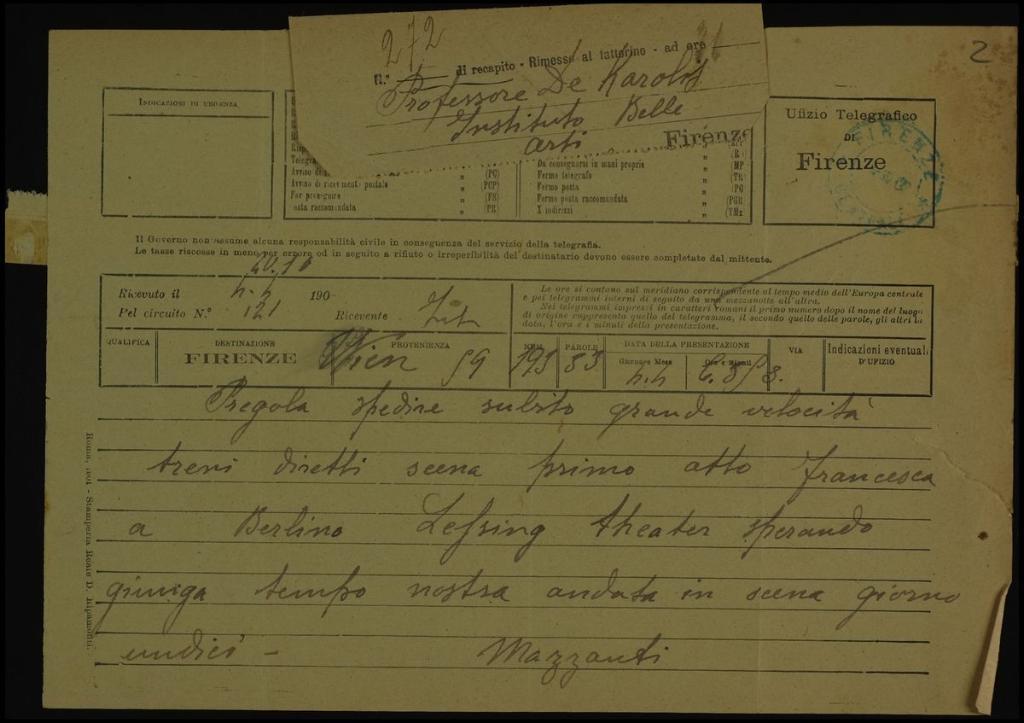 2
272
N.° di recapito - Rimesso al fattorino - ad ore
Professore De Karolis
Instituto Belle
arti Firenze
INDICAZIONI DI URGENZA
Avviso di ricevimento postale " (PCP)
Far proseguire " (FS)
Posta raccomandata " (PR)
Da consegnarsi in mani proprie " (MP)
Fermo telegrafo " (TR)
Fermo posta " (PG)
Fermo posta raccomandata " (PGR)
X indirizzi " (TMx)
Ufizio Telegrafico
DI
Firenze
FIRENZE
Il Governo non assume alcuna responsabilità civile in conseguenza del servizio della telegrafia.
Le tasse riscosse in meno per errore od in seguito a rifiuto o irreperibilità del destinatario devono essere completate dal mittente.
Ricevuto il 190
Pel circuito N.° 121 Ricevente
Le ore si contano sul meridiano corrispondente al tempo medio dell'Europa centrale
e pei telegrammi interni di seguito da una mezzanotte all'altra.
Nei telegrammi impressi in caratteri romani il primo numero dopo il nome del luogo
di origine rappresenta quello del telegramma, il secondo quello delle parole, gli altri la
data, l'ora e i minuti della presentazione.
QUALIFICA DESTINAZIONE PROVENIENZA NUM. PAROLE DATA DELLA PRESENTAZIONE VIA Indicazioni eventuali
Giorno e Mese Ore e Minuti D'UFIZIO
FIRENZE Wien 59 193 33
Pregola spedire subito grande velocità
treni diretti scena primo atto Francesca
a Berlino Lessing theater sperando
giunga tempo nostra andata in scena giorno
undici - Mazzanti